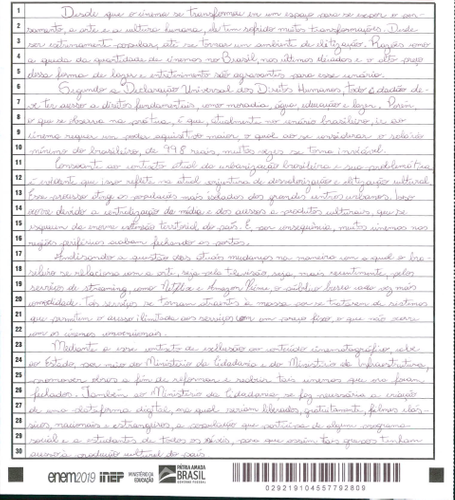 1 Desde que o cinema se transformou em um espaço para se expor o pen-
2 samento, a arte e a cultura humana, ele tem sofrido muitas transformações. Desde
3 ser extremamente popular, até se tornar um ambiente de elitização. Razões como
4 a queda da quantidade de cinemas no Brasil nas últimas décadas e o alto preço
5 dessa forma de lazer e entretenimento são agravantes para esse cenário.
6 Segundo a Declaração Universal dos Direitos Humanos, todo cidadão de-
7 ve ter acesso a direitos fundamentais, como moradia, água, educação e lazer. Porém
8 o que se observa na prática, é que, atualmente no cenário brasileiro, ir ao
9 cinema requer um poder aquisitivo maior, o qual ao se considerar o salário
10 mínimo do brasileiro, de 998 reais, muitas vezes se torna inviável.
11 Consoante ao contexto atual da urbanização brasileira e sua problemática
12 é evidente que isso reflete na atual conjuntura de desvalorização e elitização cultural.
13 Esse processo atinge as populações mais isoladas dos grandes centros urbanos. Isso
14 ocorre devido a centralização da mídia e dos acessos a produtos culturais, que se
15 esquecem da enorme extensão territorial do país. E, por consequência, muitos cinemas nas
16 regiões periféricas acabam fechando as portas.
17 Analisando a questão das atuais mudanças na maneira com a qual o bra-
18 sileiro se relaciona com a arte, seja pela televisão, seja, mais recentemente, pelos
19 serviços de streaming, como Netflix e Amazon Prime, o público busca cada vez mais
20 comodidade. Tais serviços se tornam atraentes à massa por se tratarem de sistemas
21 que permitem o acesso ilimitado aos serviços com um preço fixo, o que não ocorre
22 com os cinemas convencionais.
23 Mediante a esse contexto de exclusão ao conteúdo cinematográfico, cabe
24 ao Estado, por meio do Ministério da Cidadania e do Ministério da Infraestrutura,
25 promover obras a fim de reformar e reabrir tais cinemas que ora foram
26 fechados. Também ao Ministério da Cidadania se faz necessária a criação
27 de uma plataforma digital, na qual seriam liberados, gratuitamente, filmes clás-
28 sicos, nacionais e estrangeiros, a população que participa de algum programa
29 social e a estudantes de todos os níveis, para que assim tais grupos tenham
30 acesso à produção cultural do país.
enem2019 INEP MINISTÉRIO DA EDUCAÇÃO PÁTRIA AMADA BRASIL GOVERNO FEDERAL
029219104557792809